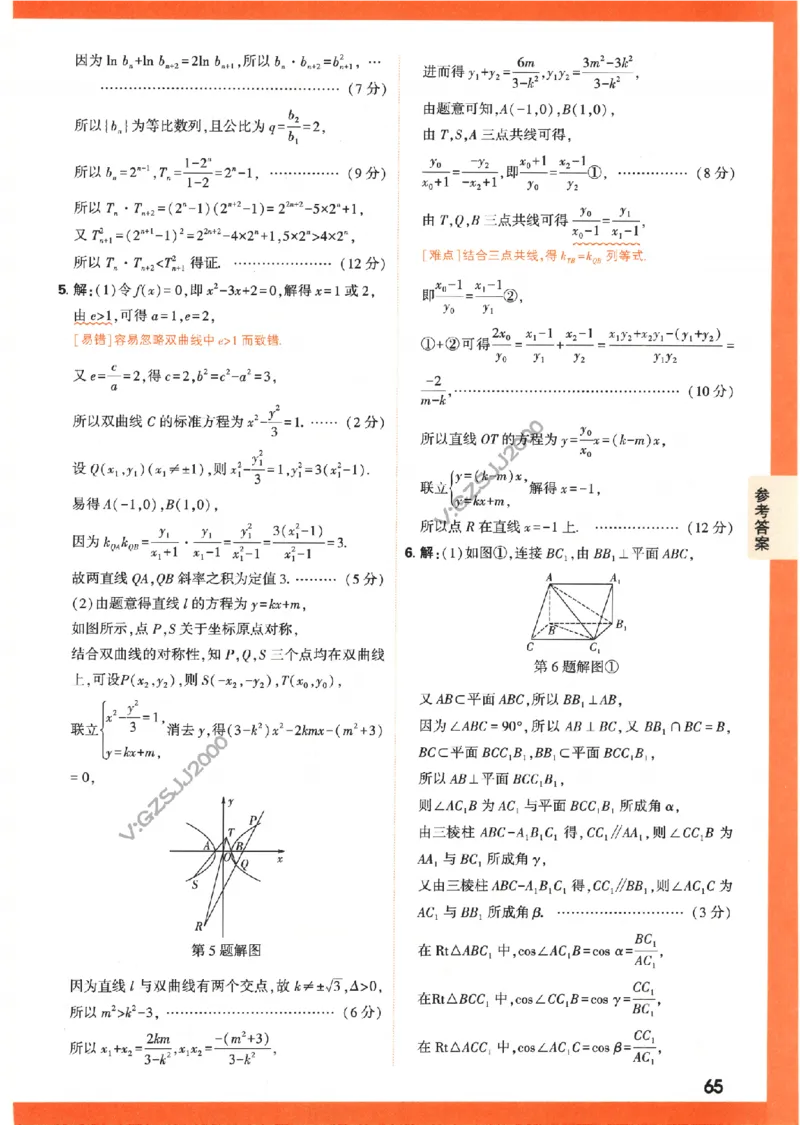 因为 ln bₙ+ln bₙ₊₂=2ln bₙ₊₁,所以 bₙ·bₙ₊₂=b²ₙ₊₁, …
………………………………………… (7分)
所以{bₙ}为等比数列,且公比为 q=b₂/b₁=2,
所以 bₙ=2ⁿ⁻¹,Tₙ=(1-2ⁿ)/(1-2)=2ⁿ-1, …………… (9分)
所以 Tₙ·Tₙ₊₂=(2ⁿ-1)(2ⁿ⁺²-1)=2²ⁿ⁺²-5×2ⁿ+1,
又 T²ₙ₊₁=(2ⁿ⁺¹-1)²=2²ⁿ⁺²-4×2ⁿ+1,5×2ⁿ>4×2ⁿ,
所以 Tₙ·Tₙ₊₂<T²ₙ₊₁ 得证. ………………… (12分)
5. 解:(1)令 f(x)=0,即 x²-3x+2=0,解得 x=1 或 2,
由 e>1,可得 a=1,e=2,
[易错]容易忽略双曲线中 e>1 而致错.
又 e=c/a=2,得 c=2,b²=c²-a²=3,
所以双曲线 C 的标准方程为 x²-y²/3=1. …… (2分)
设 Q(x₁,y₁)(x₁≠±1),则 x₁²-y₁²/3=1,y₁²=3(x₁²-1).
易得 A(-1,0),B(1,0),
因为 k_QA k_QB=y₁/(x₁+1)·y₁/(x₁-1)=y₁²/(x₁²-1)=3(x₁²-1)/(x₁²-1)=3.
故两直线 QA,QB 斜率之积为定值 3. ……… (5分)
(2)由题意得直线 l 的方程为 y=kx+m,
如图所示,点 P,S 关于坐标原点对称,
结合双曲线的对称性,知 P,Q,S 三个点均在双曲线
上,可设P(x₂,y₂),则 S(-x₂,-y₂),T(x₀,y₀),
联立{x²-y²/3=1, y=kx+m, 消去 y,得(3-k²)x²-2kmx-(m²+3)
=0,
V:GZSJJ2000
y
P
T
A
O
B
x
Q
S
R
第5题解图
因为直线 l 与双曲线有两个交点,故 k≠±√3,Δ>0,
所以 m²>k²-3, …………………………… (6分)
所以 x₁+x₂=2km/(3-k²),x₁x₂=-(m²+3)/(3-k²),
进而得 y₁+y₂=6m/(3-k²),y₁y₂=(3m²-3k²)/(3-k²),
由题意可知,A(-1,0),B(1,0),
由 T,S,A 三点共线可得,
y₀/(x₀+1)=-y₂/(-x₂+1),即(x₀+1)/y₀=(x₂-1)/y₂①, …………… (8分)
由 T,Q,B 三点共线可得 y₀/(x₀-1)=y₁/(x₁-1),
[难点]结合三点共线,得 k_TB=k_QB 列等式.
即(x₀-1)/y₀=(x₁-1)/y₁②,
①+②可得 2x₀/y₀=(x₁-1)/y₁+(x₂-1)/y₂=(x₁y₂+x₂y₁-(y₁+y₂))/(y₁y₂)=
-2/(m-k), ……………………………………… (10分)
所以直线 OT 的方程为 y=(y₀/x₀)x=(k-m)x,
联立{y=(k-m)x, y=kx+m, 解得 x=-1,
V:GZSJJ2000
所以点 R 在直线 x=-1 上. ……………… (12分)
6. 解:(1)如图①,连接 BC₁,由 BB₁⊥平面 ABC,
A
A₁
B
B₁
C
C₁
第6题解图①
又 AB⊂平面 ABC,所以 BB₁⊥AB,
因为∠ABC=90°,所以 AB⊥BC,又 BB₁∩BC=B,
BC⊂平面 BCC₁B₁,BB₁⊂平面 BCC₁B₁,
所以 AB⊥平面 BCC₁B₁,
则∠AC₁B 为 AC₁ 与平面 BCC₁B₁ 所成角 α,
由三棱柱 ABC-A₁B₁C₁ 得,CC₁∥AA₁,则∠CC₁B 为
AA₁ 与 BC₁ 所成角 γ,
又由三棱柱 ABC-A₁B₁C₁ 得,CC₁∥BB₁,则∠AC₁C 为
AC₁ 与 BB₁ 所成角 β. …………………… (3分)
在 Rt△ABC₁ 中,cos∠AC₁B=cos α=BC₁/AC₁,
在Rt△BCC₁ 中,cos∠CC₁B=cos γ=CC₁/BC₁,
在 Rt△ACC₁ 中,cos∠AC₁C=cos β=CC₁/AC₁,
参考答案
65